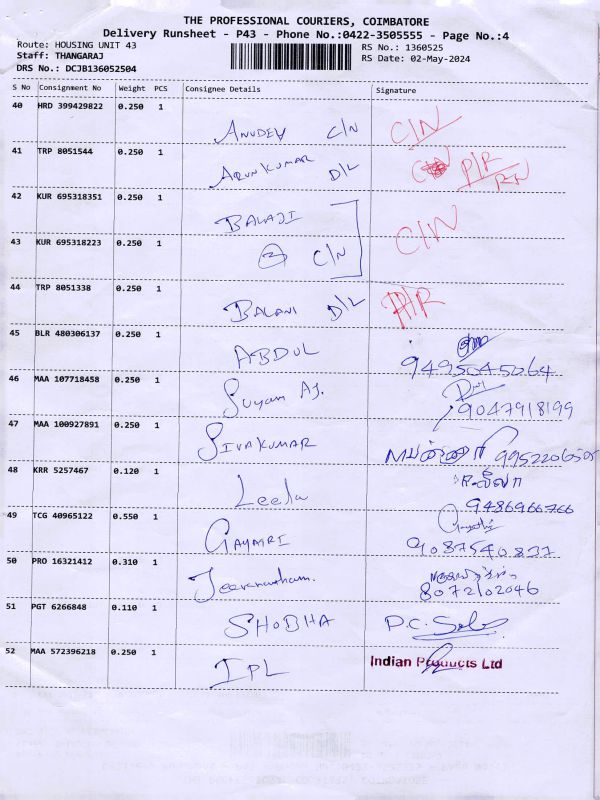 THE PROFESSIONAL COURIERS, COIMBATORE
Delivery Runsheet - P43 - Phone No.:0422-3505555 - Page No.:4
Route: HOUSING UNIT 43 RS No.: 1360525
Staff: THANGARAJ RS Date: 02-May-2024
DRS No.: DCJB136052504
S No Consignment No Weight PCS Consignee Details Signature
40 HRD 399429822 0.250 1
ANUDEV C/N C/N
41 TRP 8051544 0.250 1
ARUNKUMAR D/L P/R
42 KUR 695318351 0.250 1
BALAJI C/N
43 KUR 695318223 0.250 1
2 C/N
44 TRP 8051338 0.250 1
BALANI D/L P/R
45 BLR 480306137 0.250 1
ABDUL 9495045064
46 MAA 107718458 0.250 1
Suyam AJ. 9047918199
47 MAA 100927891 0.250 1
SIVAKUMAR
48 KRR 5257467 0.120 1
Leela லீலா
9486966766
49 TCG 40965122 0.550 1
GAYATRI 9087540837
50 PRO 16321412 0.310 1
Jeevanantham. 8072102046
51 PGT 6266848 0.110 1
SHOBHA P.C.
52 MAA 572396218 0.250 1
IPL Indian Products Ltd